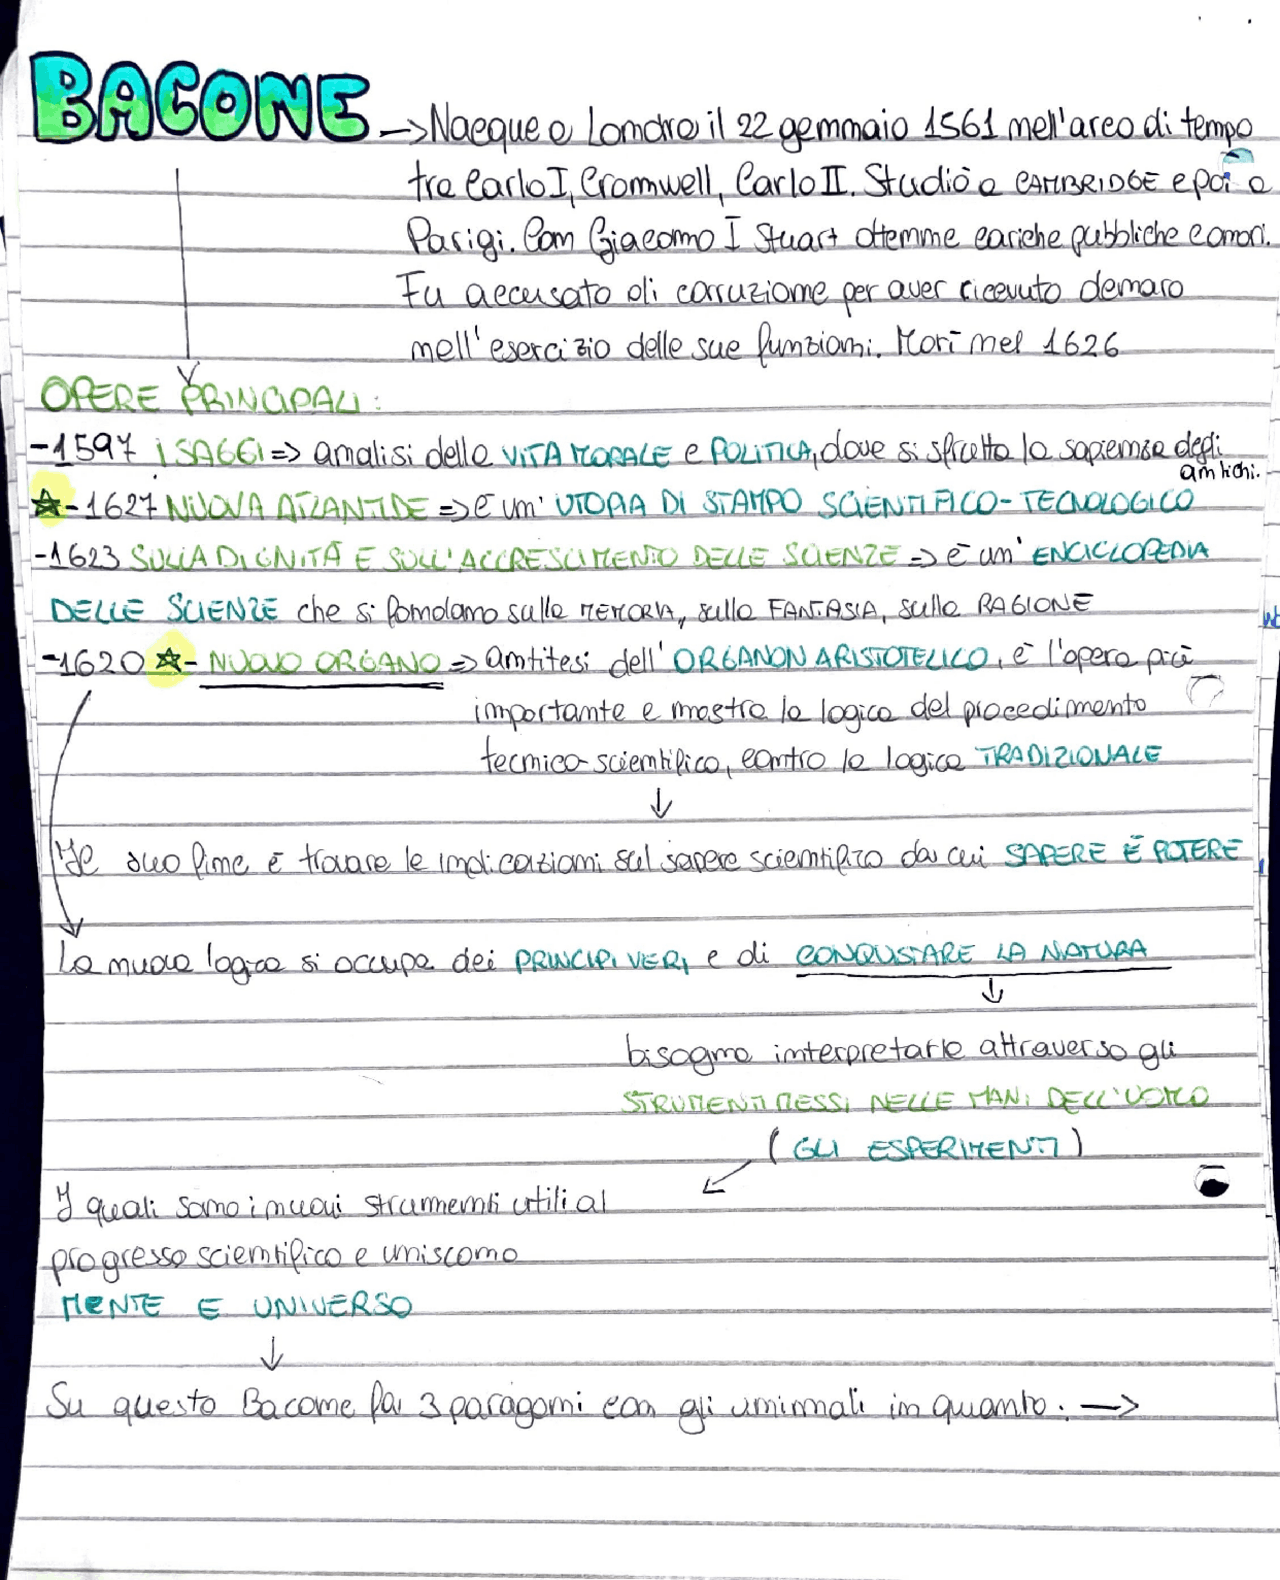 BACONE
→Nacque a Londra il 22 gennaio 1561 nell'arco di tempo
tra Carlo I, Cromwell, Carlo II. Studiò a CAMBRIDGE e poi a
Parigi. Con Giacomo I Stuart ottenne cariche pubbliche e onori.
Fu accusato di corruzione per aver ricevuto denaro
nell'esercizio delle sue funzioni. Morì nel 1626
OPERE PRINCIPALI:
-1597 I SAGGI => analisi della VITA MORALE e POLITICA, dove si sfrutta la sapienza degli
antichi.
☆-1627 NUOVA ATLANTIDE => è un' UTOPIA DI STAMPO SCIENTIFICO-TECNOLOGICO
-1623 SULLA DIGNITÀ E SULL'ACCRESCIMENTO DELLE SCIENZE => è un' ENCICLOPEDIA
DELLE SCIENZE che si fondano sulla MEMORIA, sulla FANTASIA, sulla RAGIONE
-1620 ☆- NUOVO ORGANO => antitesi dell' ORGANON ARISTOTELICO, è l'opera più
importante e mostra la logica del procedimento
tecnico-scientifico, contro la logica TRADIZIONALE
↓
Il suo fine è trovare le indicazioni sul sapere scientifico da cui SAPERE È POTERE
La nuova logica si occupa dei PRINCIPI VERI e di CONQUISTARE LA NATURA
↓
bisogna interpretarle attraverso gli
STRUMENTI MESSI NELLE MANI DELL'UOMO
(GLI ESPERIMENTI)
I quali sono i nuovi strumenti utili al
progresso scientifico e uniscono
MENTE E UNIVERSO
↓
Su questo Bacone fa 3 paragoni con gli uminmali in quanto: →